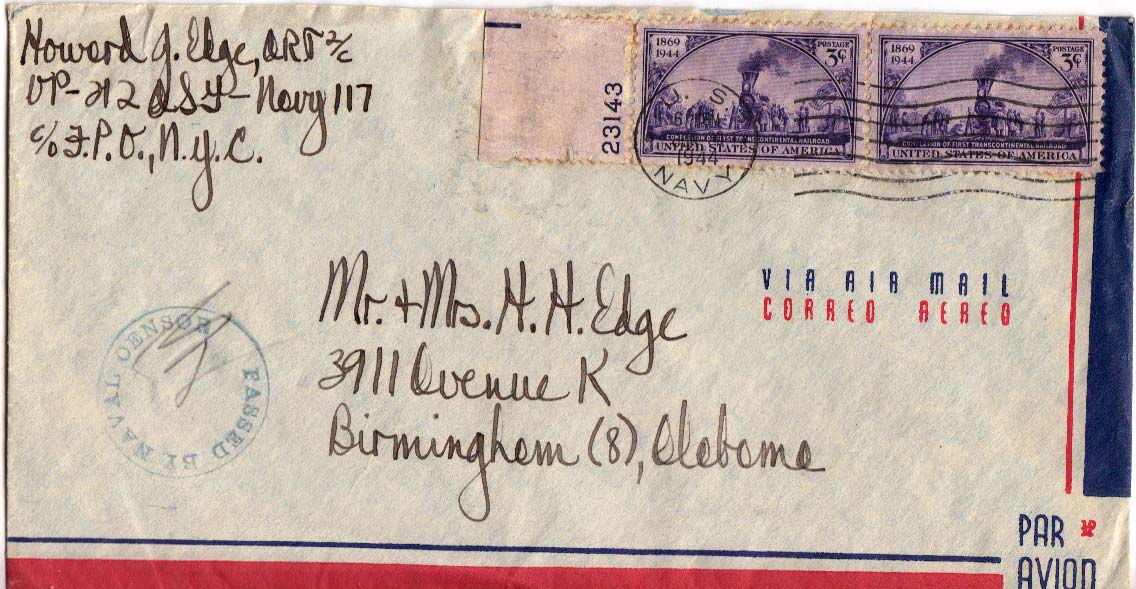 Howard J. Edge, ART 2/c
VP-212 USF-Navy 117
c/o F.P.O., N.Y.C.
23143
1869
1944
POSTAGE
3¢
COMPLETION OF FIRST TRANSCONTINENTAL RAILROAD
UNITED STATES OF AMERICA
1869
1944
POSTAGE
3¢
COMPLETION OF FIRST TRANSCONTINENTAL RAILROAD
UNITED STATES OF AMERICA
U. S.
1944
NAVY
VIA AIR MAIL
CORREO AEREO
Mr. + Mrs. H. H. Edge
3911 Avenue K
Birmingham (8), Alabama
PASSED BY NAVAL CENSOR
PAR
AVION